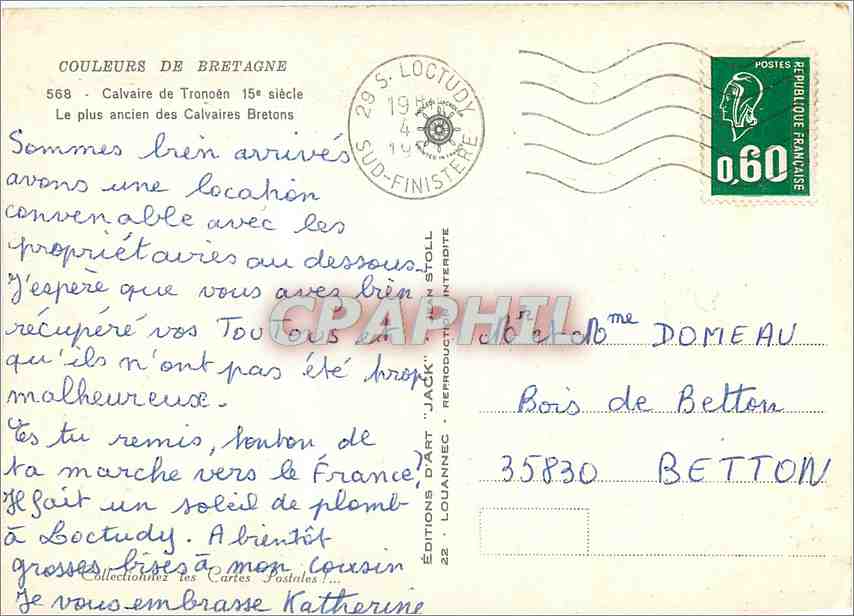 COULEURS DE BRETAGNE
568 - Calvaire de Tronoën 15e siècle
Le plus ancien des Calvaires Bretons
29 S. LOCTUDY
19 H
4
19
SUD-FINISTERE
POSTES
REPUBLIQUE FRANÇAISE
0,60
Sommes bien arrivés
avons une location
convenable avec les
propriétaires au dessous.
J'espère que vous avez bien
récupéré vos TouTous et
qu'ils n'ont pas été trop
malheureux.
Es tu remis, tonton de
ta marche vers la France?
Il fait un soleil de plomb
à Loctudy. A bientôt
grosses bises à mon cousin
Je vous embrasse Katherine
Collectionnez les Cartes Postales !...
ÉDITIONS D'ART "JACK" - STOLL
22 - LOUANNEC - REPRODUCTION INTERDITE
CPAPHIL
Mr et Mme DOMEAU
Bois de Betton
35830 BETTON